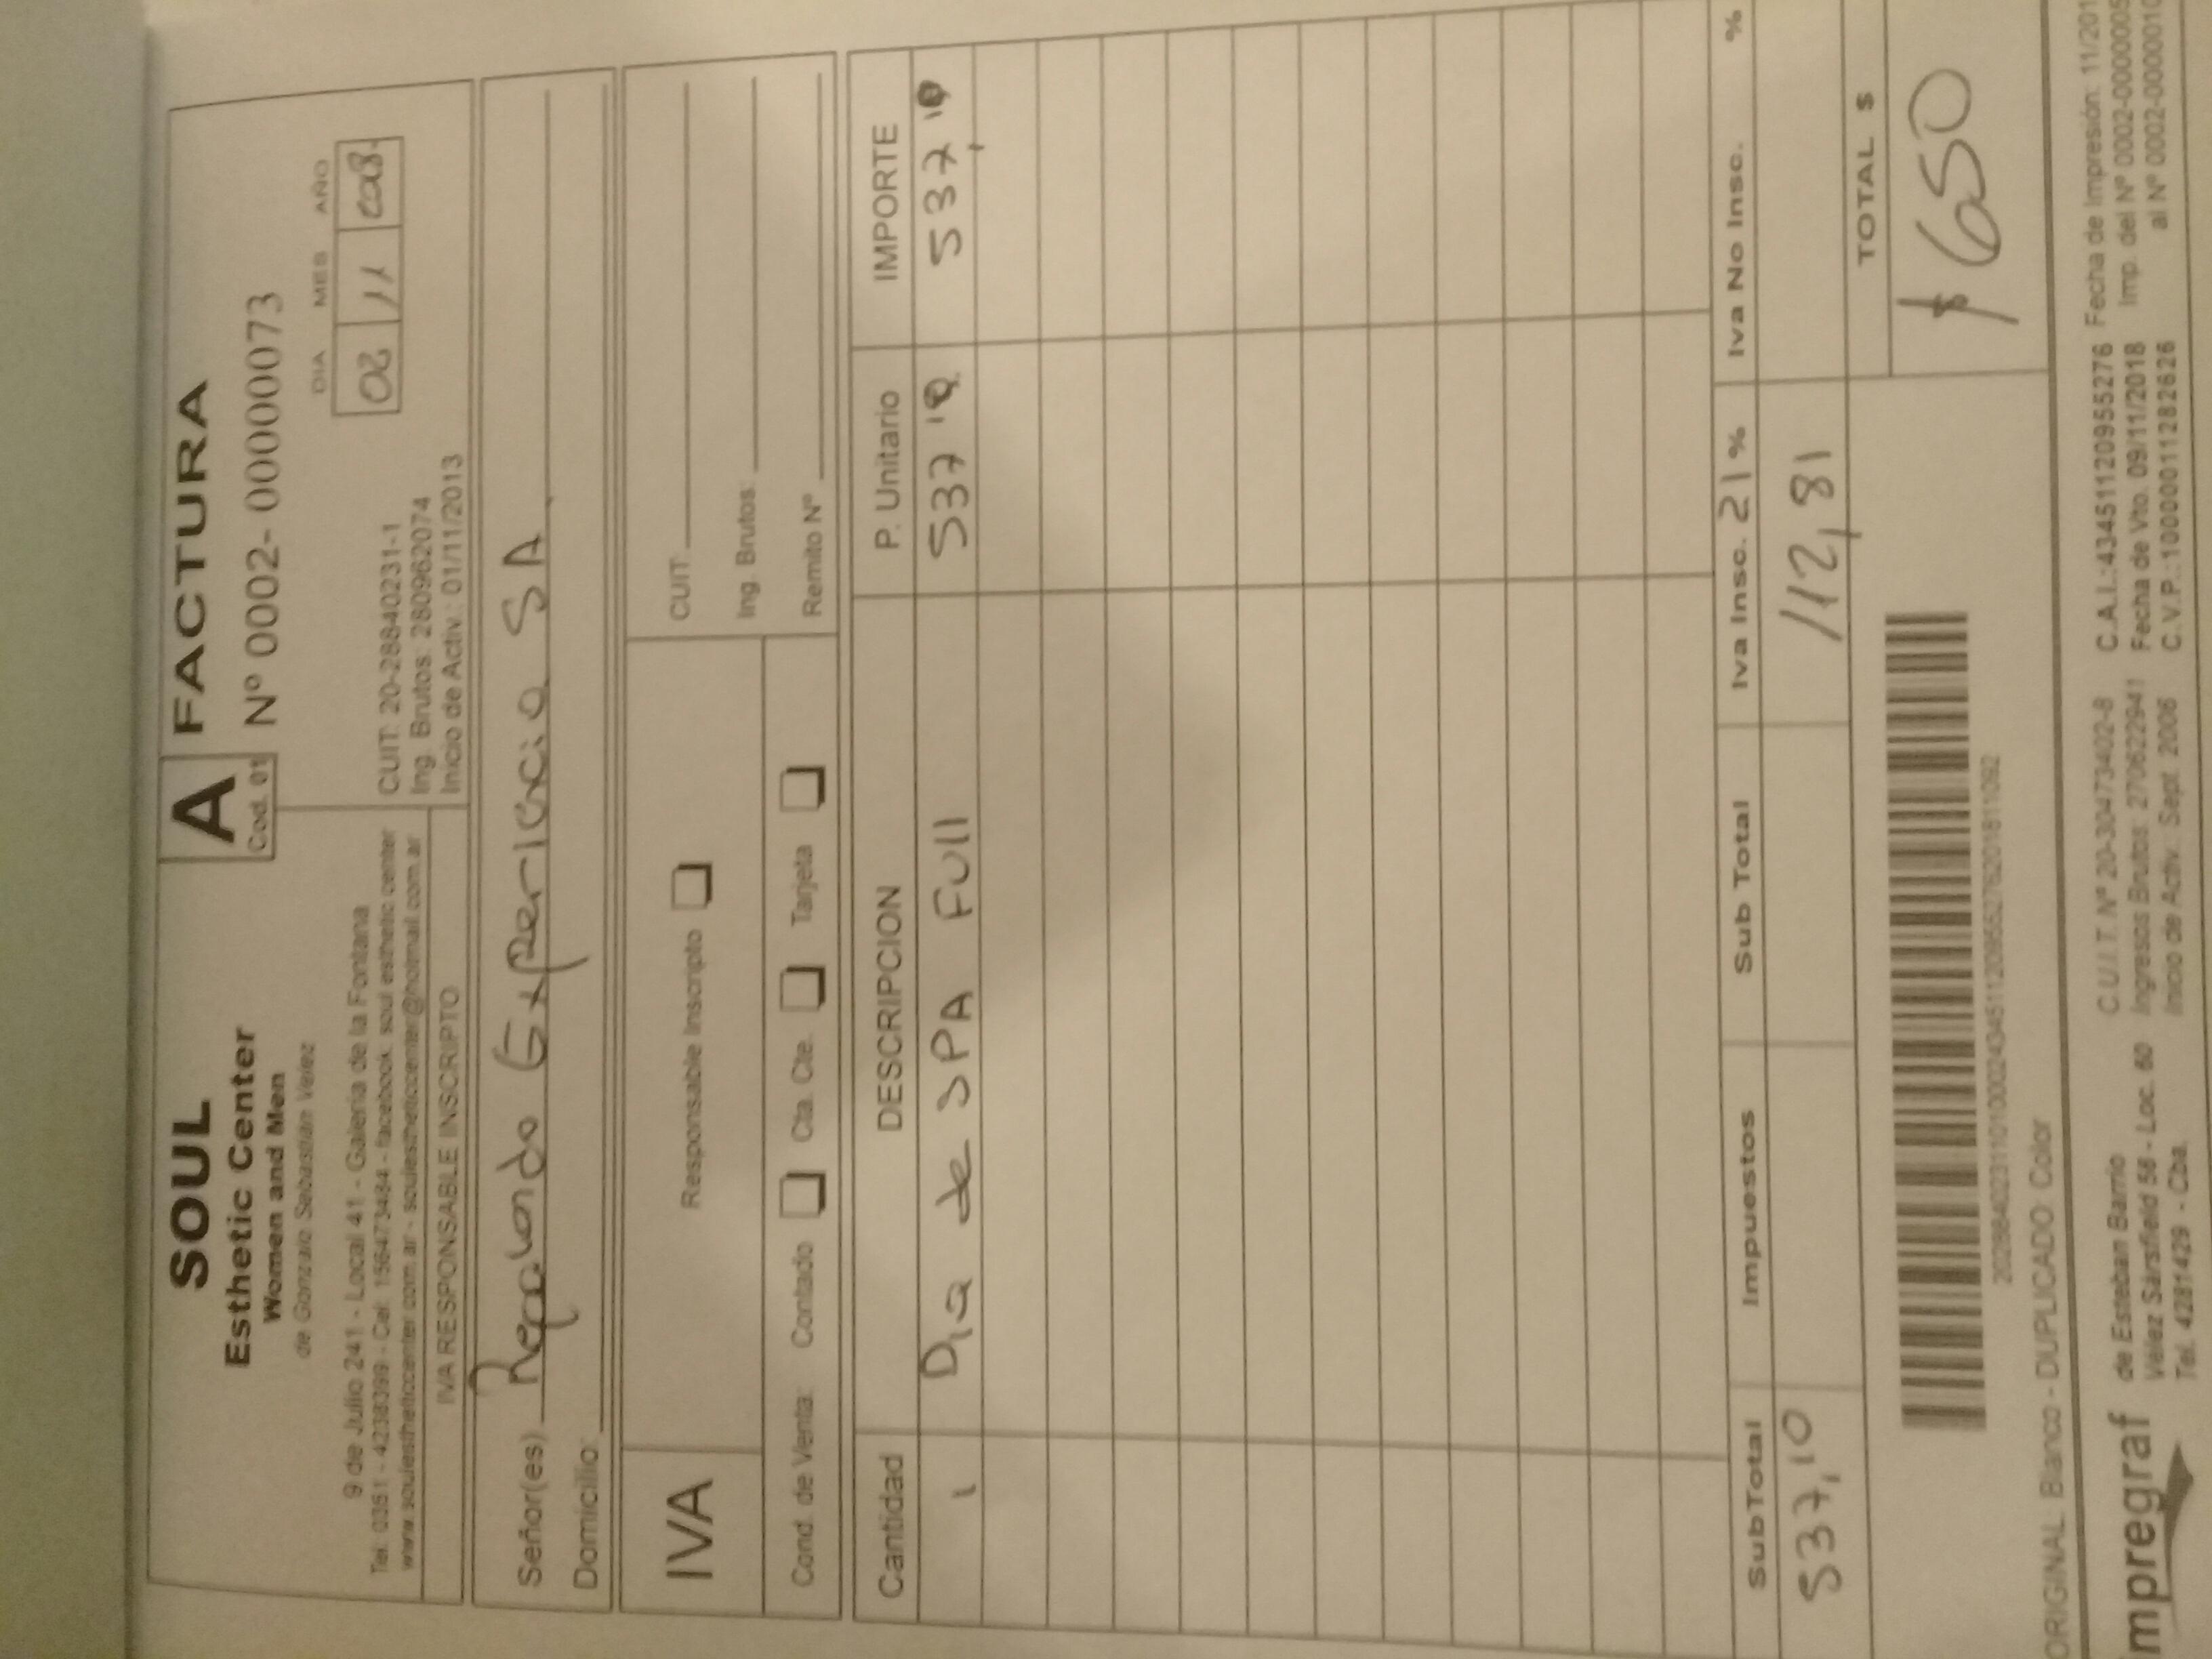 SOUL
Esthetic Center
Women and Men
de Gonzalo Sebastián Velez
9 de Julio 241 - Local 41 - Galería de la Fontana
Tel: 0351 - 4238399 - Cel: 156473484 - facebook: soul esthetic center
www.soulestheticcenter.com.ar - soulestheticcenter@hotmail.com.ar
IVA RESPONSABLE INSCRIPTO
A
Cod. 01
FACTURA
Nº 0002- 00000073
DIA MES AÑO
02 11
CUIT: 20-28840231-1
Ing. Brutos: 280962074
Inicio de Activ.: 01/11/2013
Señor(es) Regalando Experiencia SA
Domicilio:
IVA
Responsable Inscripto
CUIT:
Ing. Brutos:
Cond. de Venta: Contado Cta. Cte. Tarjeta
Remito Nº
Cantidad DESCRIPCION P. Unitario IMPORTE
1 Dia de SPA Full 537,10 537,10
SubTotal Impuestos Sub Total Iva Insc. 21 % Iva No Insc. %
537,10 112,81
TOTAL $
$ 650
ORIGINAL Blanco - DUPLICADO Color
impregraf
de Esteban Barrio
Vélez Sársfield 56 - Loc. 60
Tel. 4281429 - Cba.
C.U.I.T. Nº 20-30473402-8
Ingresos Brutos: 270622941
Inicio de Activ. Sept. 2006
C.A.I.:43451120955276
Fecha de Vto. 09/11/2018
C.V.P.:10000011282626
Fecha de Impresión: 11/201
Imp. del Nº 0002-0000005
al Nº 0002-0000010